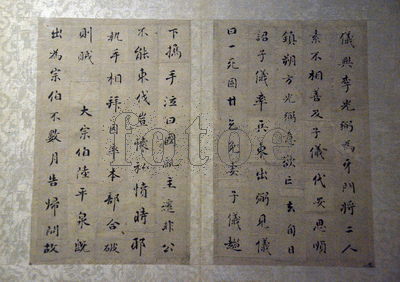 儀與李光弼為牙門將二人
素不相善及子儀代安思順
鎮朔方光弼意欲亡去旬日
詔子儀率兵東出弼見儀
曰一死固甘乞免妻子儀趨
下攜手泣曰國亂主遷非公
不能東伐豈懷私憤時耶
執手相拜因率本部合破
則賊 大宗伯陸平泉既
出為宗伯不數月告歸
fotoe